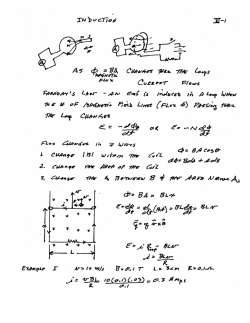 INDUCTION III-1
AS Φ = BA CHANGES THRU THE LOOP
MAGNETIC FLUX
CURRENT FLOWS
FARADAY'S LAW - AN EMF IS INDUCED IN A LOOP WHEN
THE # OF MAGNETIC FIELD LINES (FLUX Φ) PASSING THRU
THE LOOP CHANGES
E = -dΦ/dt OR E = -N dΦ/dt
FLUX CHANGES IN 3 WAYS
Φ = BA cos θ
1. CHANGE |B| WITHIN THE COIL
2. CHANGE THE AREA OF THE COIL
3. CHANGE THE ∡ BETWEEN B & THE AREA
Φ = BA = BLx
E = dΦ/dt = d/dt (BA) = BL dx/dt = BLv
E = i R = BLv
i = BLv/R
EXAMPLE I v = 10 m/s B = 0.1 T L = 3cm R = 0.1Ω
i = vBL/R = 10(0.1)(.03)/0.1 = 0.3 Amps